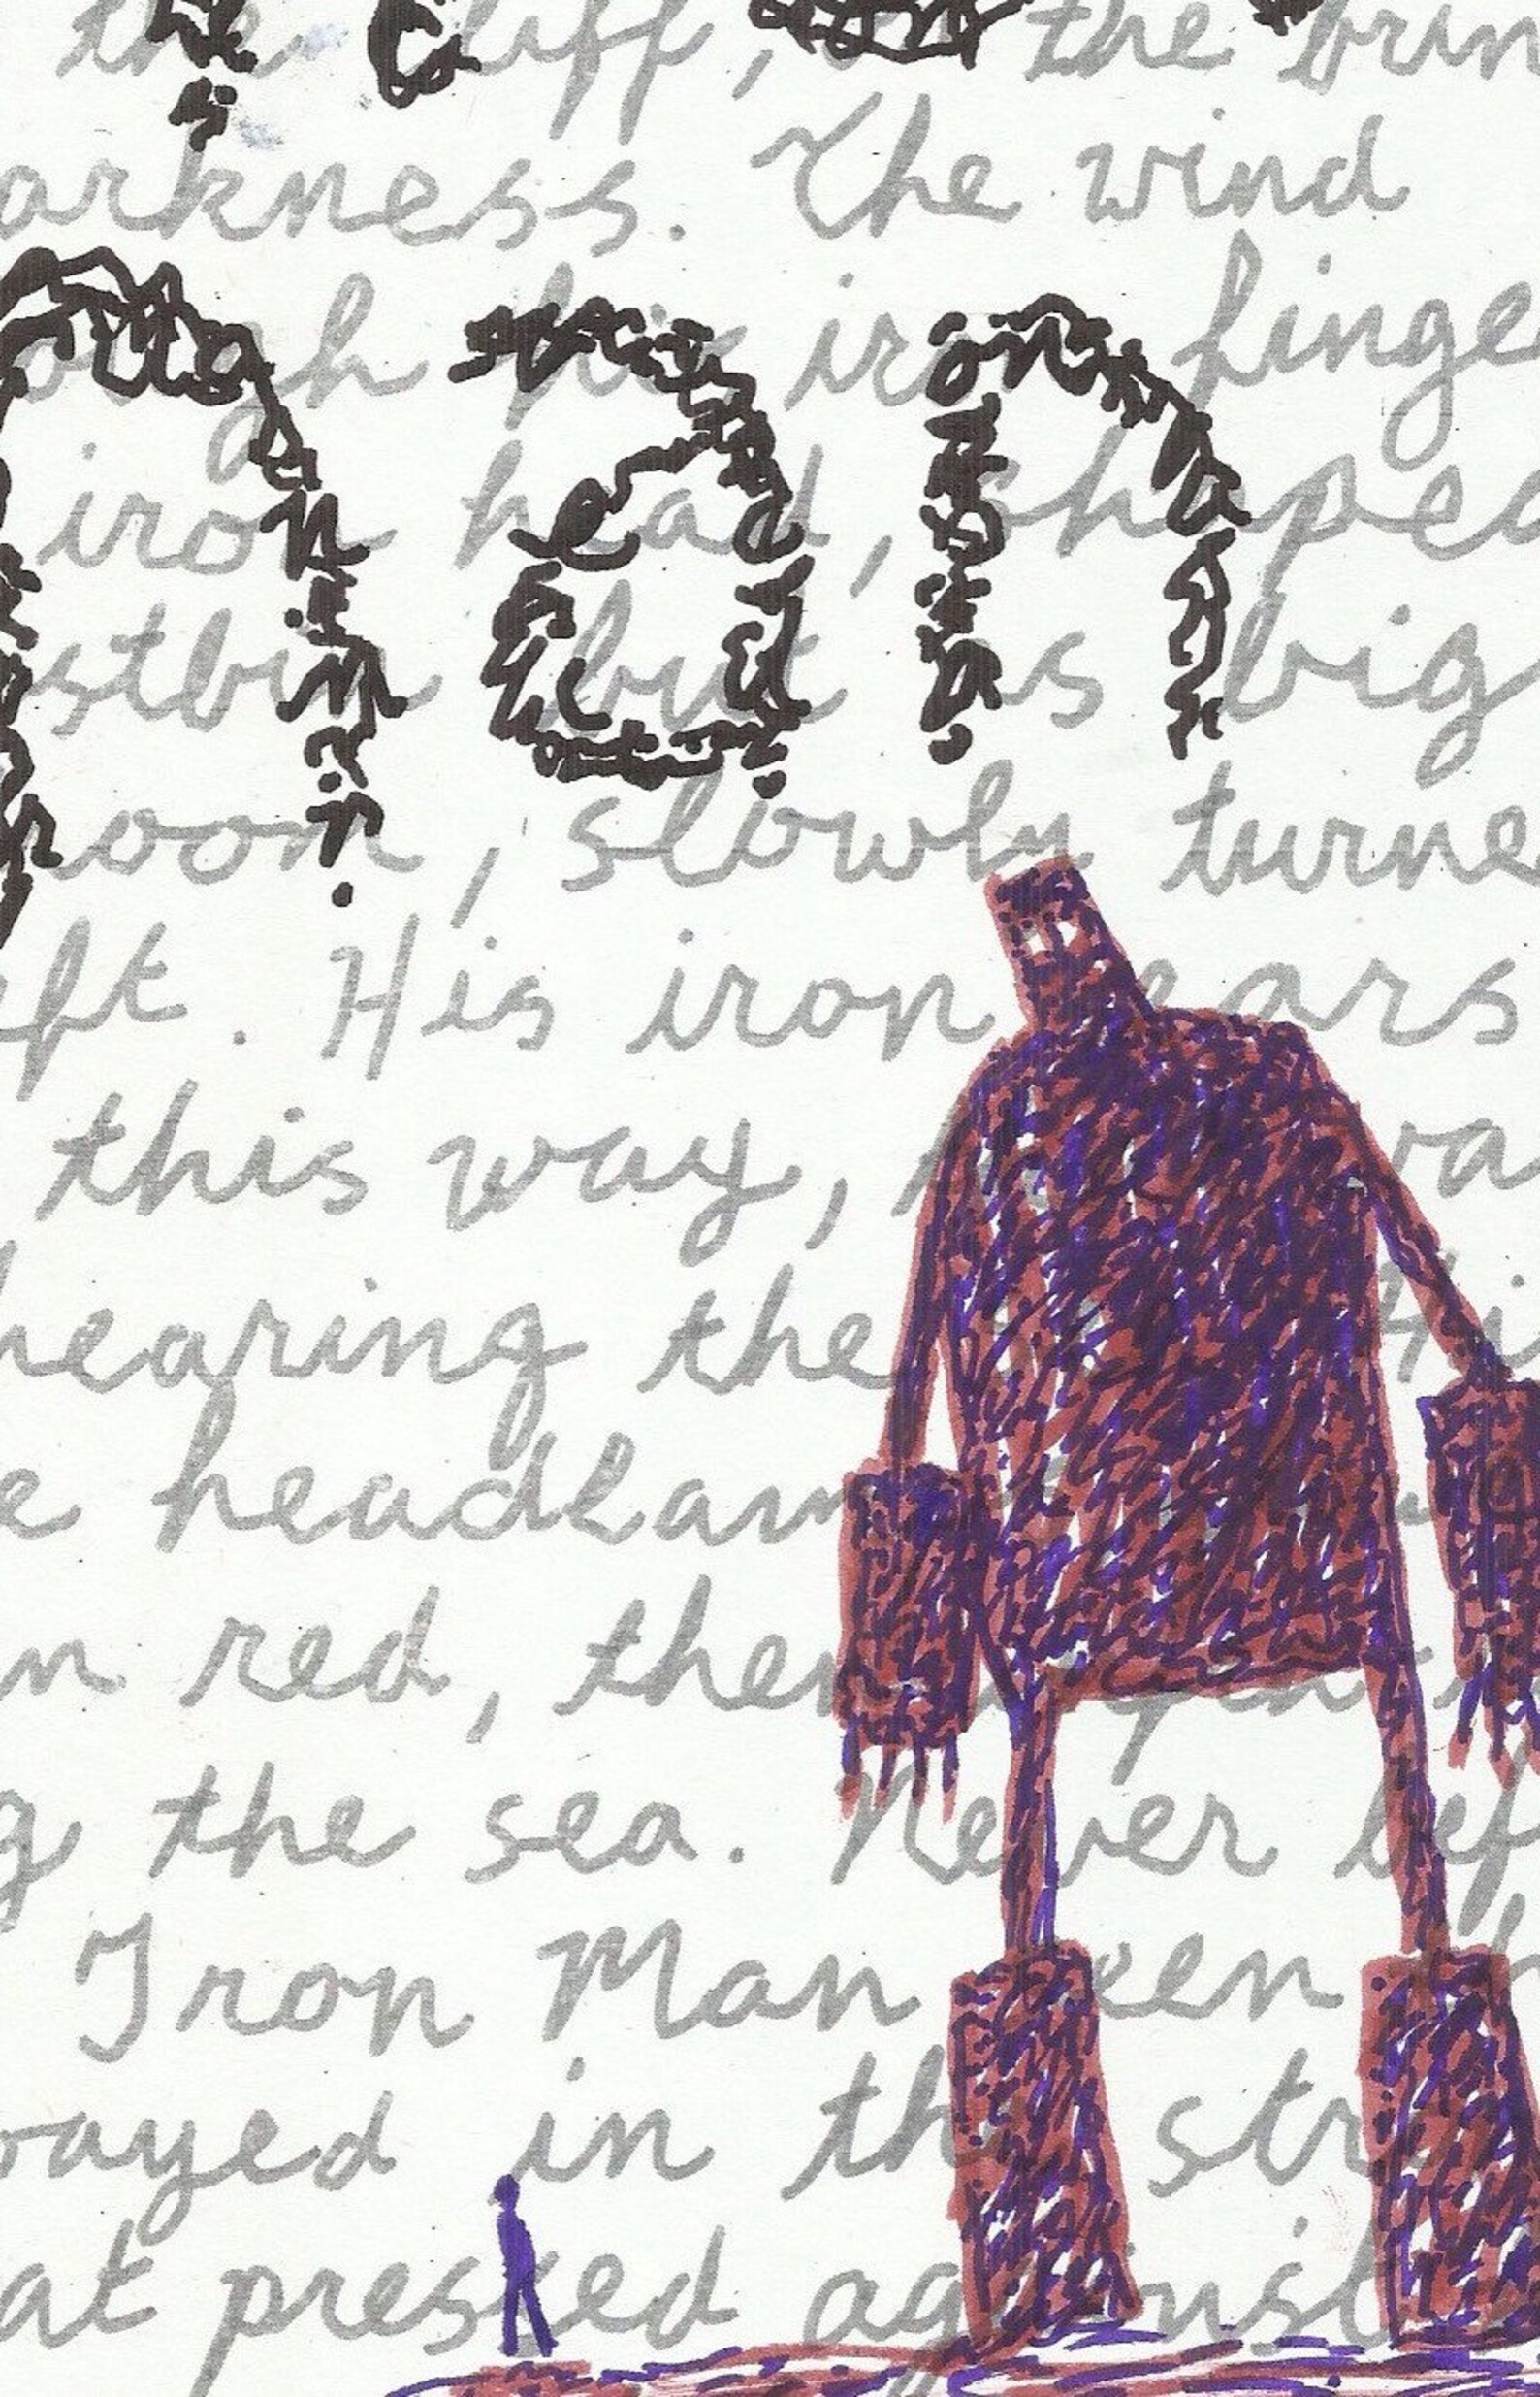 the cliff, the brin
arkness. The wind
man
ough his iron finge
iron head, shaped
stbin but as big
oom, slowly turne
ft. His iron ears
this way,
hearing the
e headlam
n red, then
g the sea. Never bef
Iron Man been
wayed in the str
at pressed against